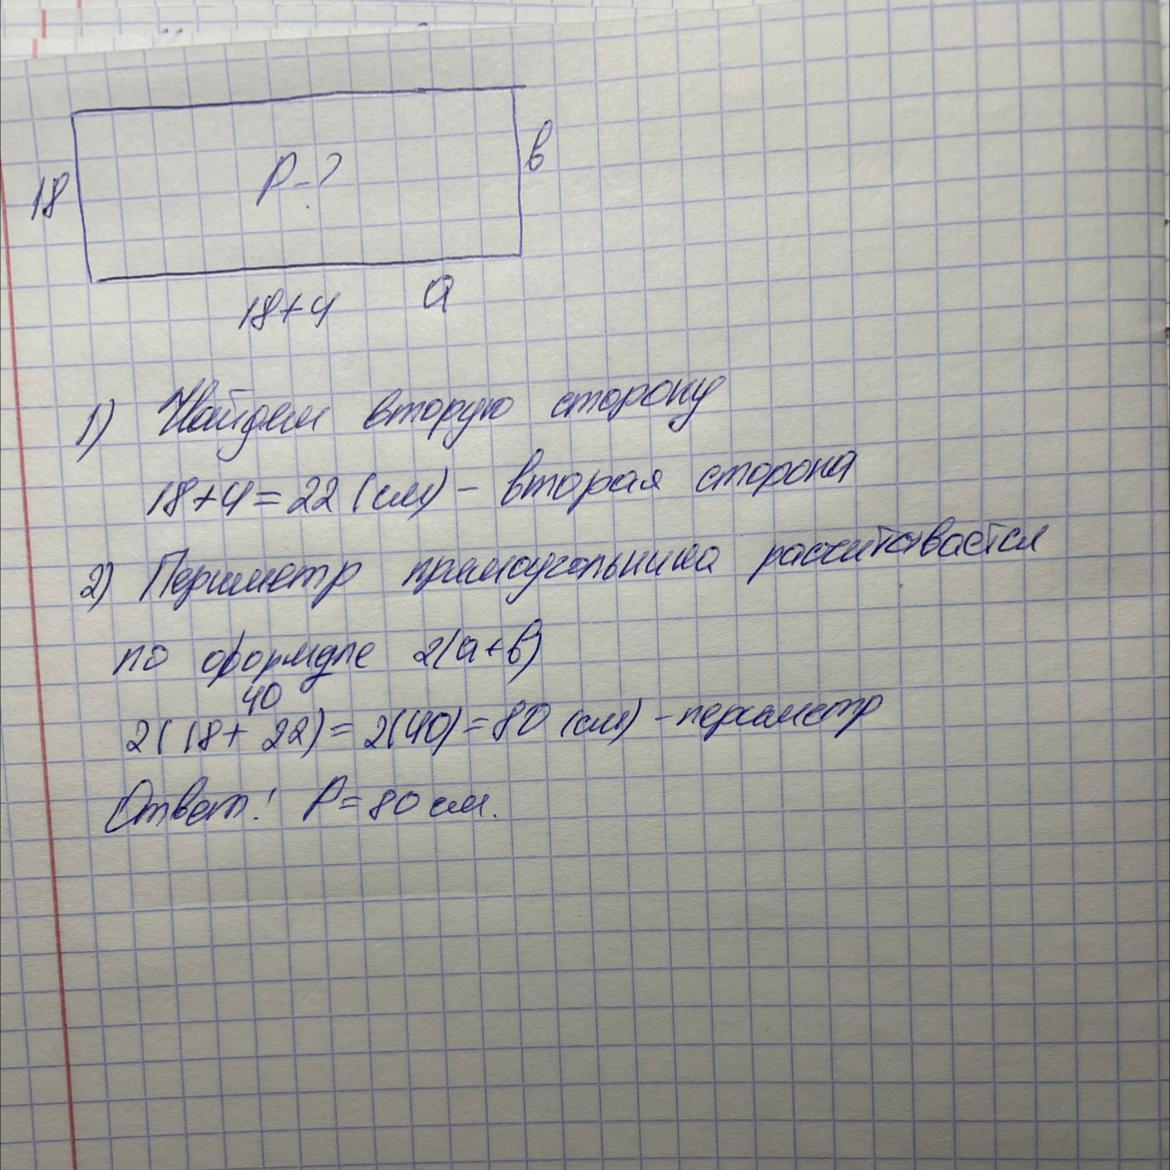 18
P-?
в
18+4
a
1) Найдем вторую сторону
18+4=22 (см) - вторая сторона
2) Периметр прямоугольника расчитывается
по формуле 2(a+b)
40
2(18+22)=2(40)=80 (см) - периметр
Ответ! P=80 см.